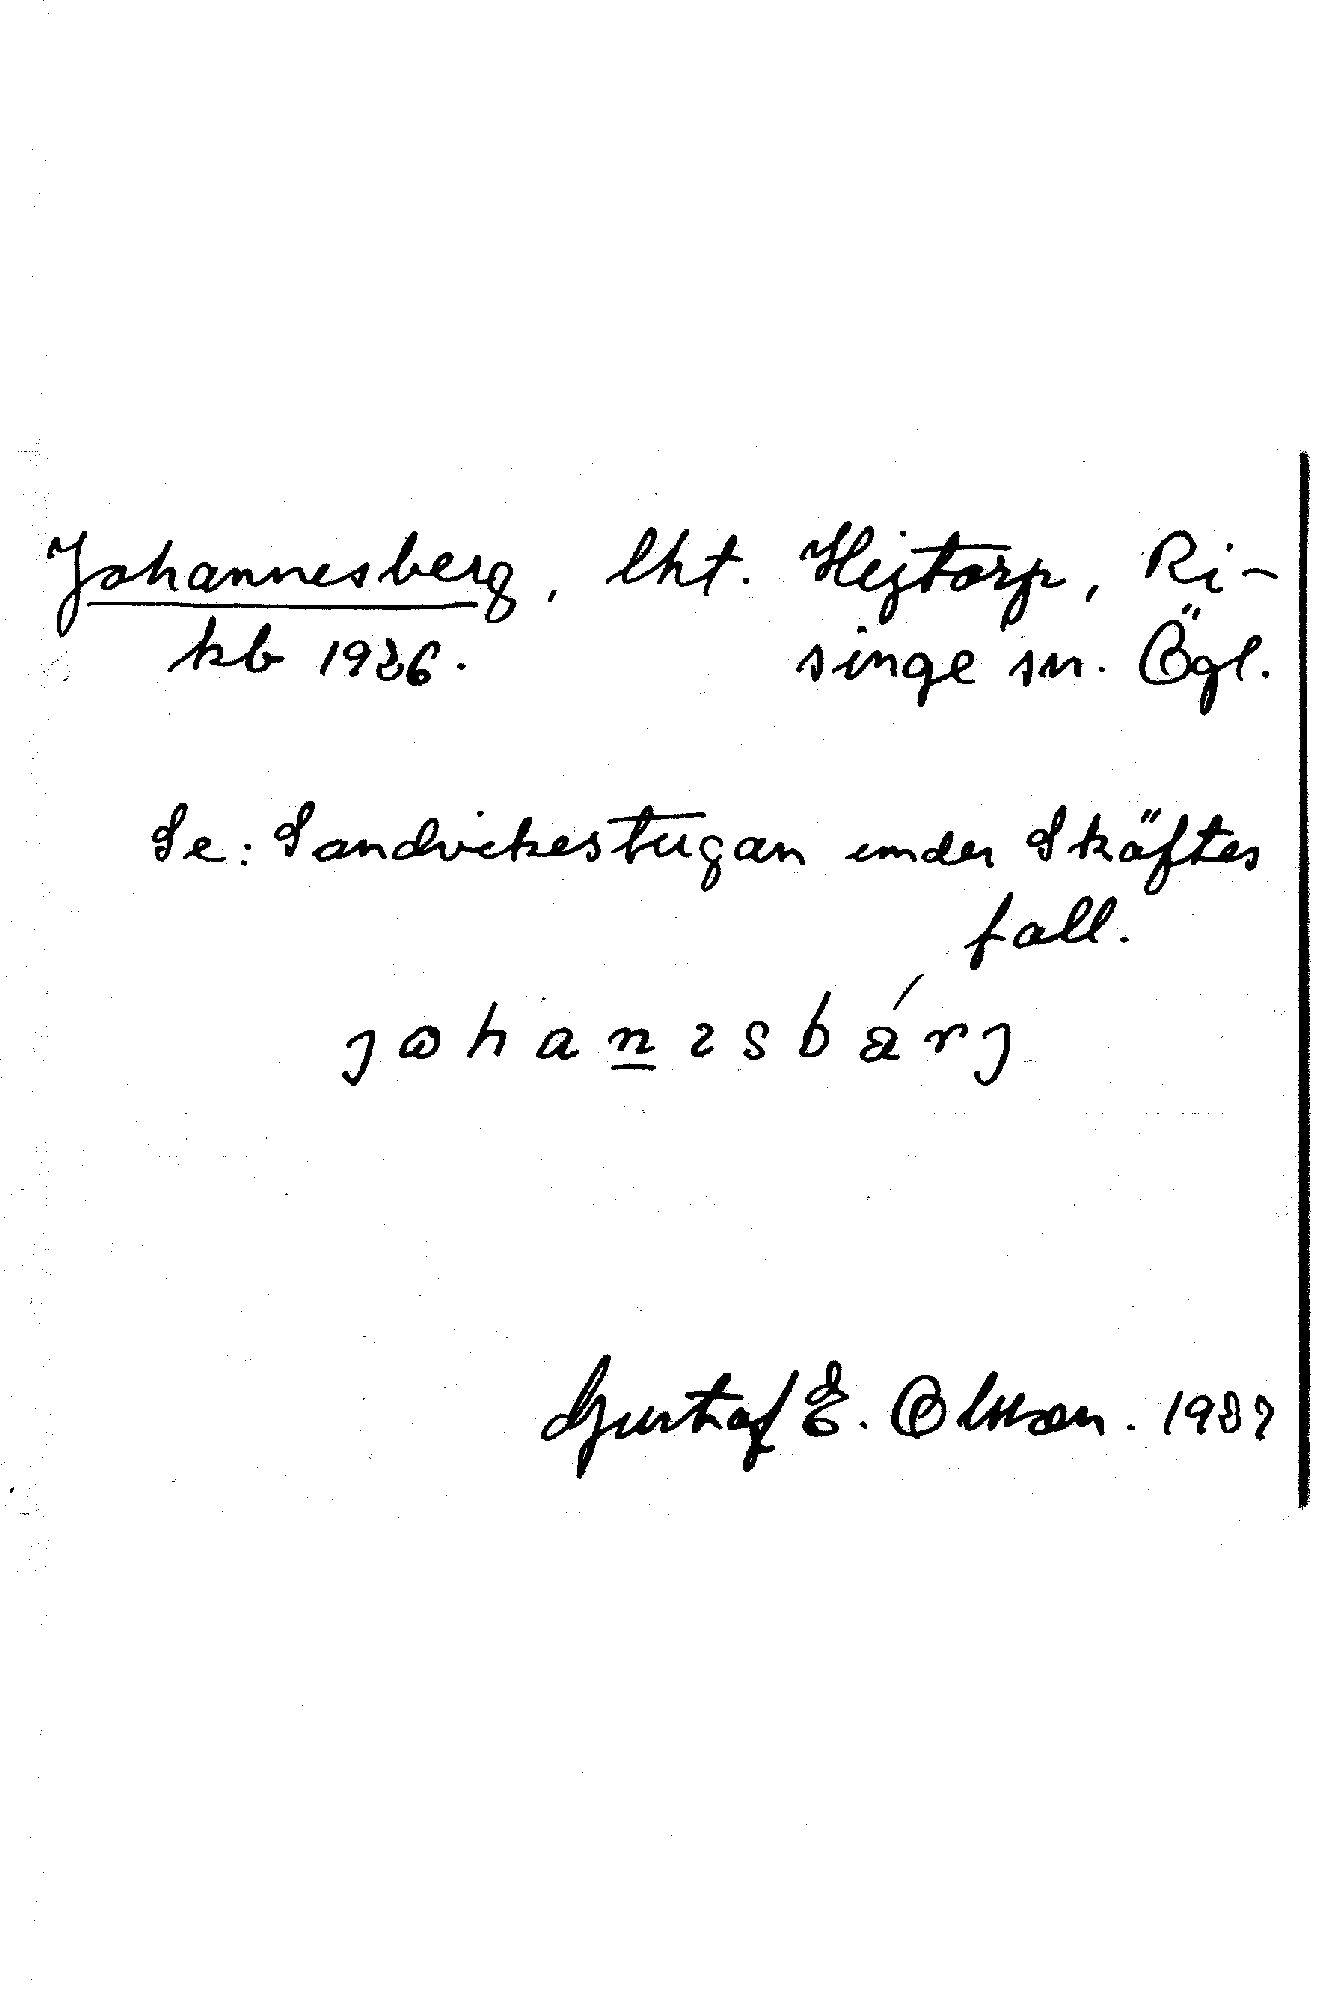 Johannesberg, lht. Hejtorp, Ri-
kb 1936. singe sn. Ögl.
Se: Sandvikestugan under Skäftes
fall.
johanɛsbárj
Gustaf E. Olsson. 1937